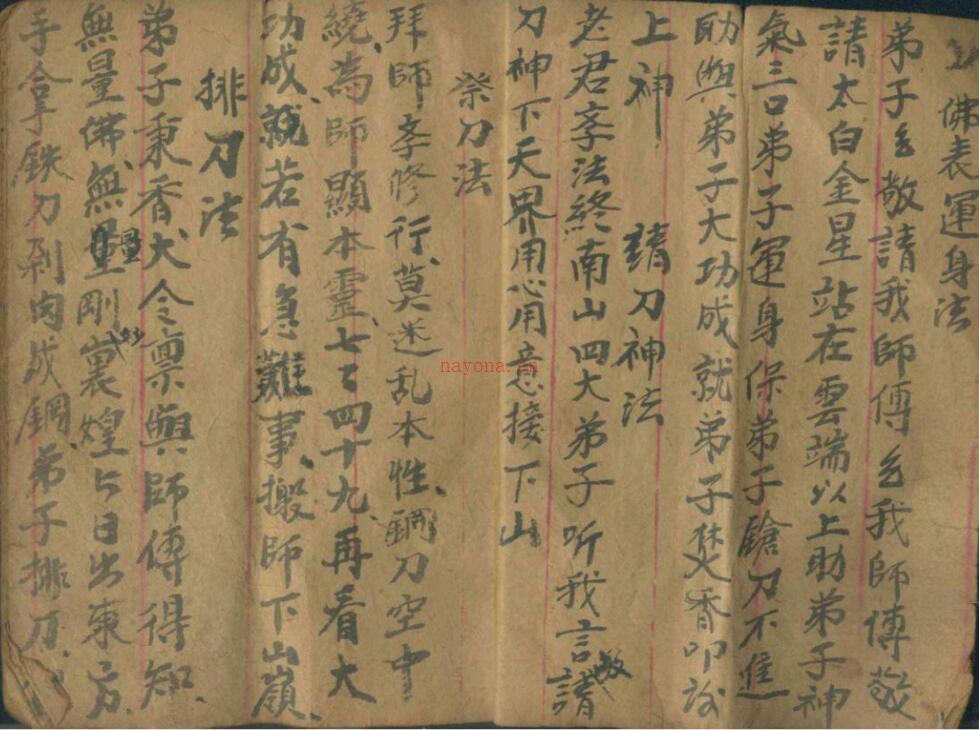 佛表運身法
弟子敬請我師傅我師傅敬
請太白金星站在雲端以上助弟子神
氣三口弟子運身保弟子鎗刀不進
助與弟子大功成就弟子焚香叩
上神 請刀神法
老君孝法終南山四大弟子听我言敬請
刀神下天界用心用意接下山
祭刀法
拜師孝修行莫迷乱本性鋼刀空中
繞為師顯本靈七七四十九再看大
功成就若有急難事搬師下山嶺
排刀法
弟子秉香火令禀與師傅得知
無量佛無量剛裏煌与日出東方
手拿鉄刀剁肉成鋼弟子排刀
nayona.cn